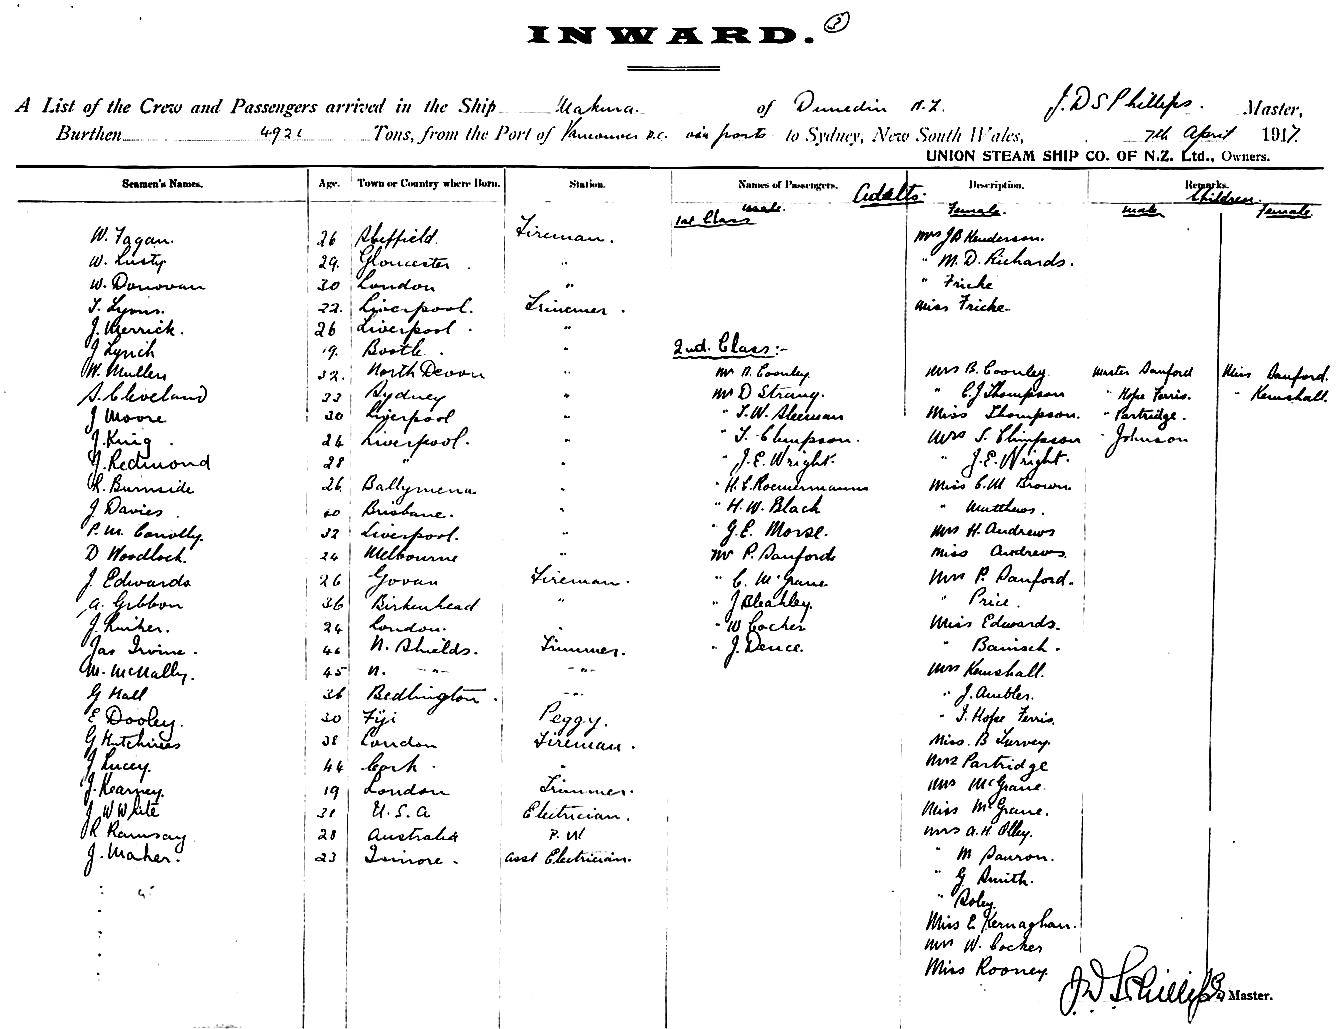 INWARD. (3)
A List of the Crew and Passengers arrived in the Ship Makura of Dunedin N.Z. J. D S Phillips. Master,
Burthen 4921 Tons, from the Port of Vancouver B.C. via ports to Sydney, New South Wales, 7th April 1917.
UNION STEAM SHIP CO. OF N.Z. Ltd., Owners.
Seamen's Names. Age. Town or Country where Born. Station. Names of Passengers. Adults. Description. Remarks. Children
1st Class male. Female. male Female
W. Fagan. 26 Sheffield. Fireman. Mrs J B Henderson.
W. Lusty 29. Gloucester. " " M. D. Richards.
W. Donovan 30 London " " Fricke
T. Lyons. 22. Liverpool. Trimmer. Miss Fricke.
J. Merrick. 26 Liverpool. "
J Lynch 19. Bootle. " 2nd. Class:-
W. Mullen 32. North Devon " Mr B. Coonley Mrs B. Coonley. Master Danford Miss Danford.
S. Cleveland 23 Sydney " Mr D Strang. " C. J Thompson " Hope Ferris. " Kemshall.
J Moore 30 Liverpool " " T. W. Sleeman Miss Thompson. " Partridge.
J. King. 24 Liverpool. " " T. Clumpson. Mrs S. Clumpson " Johnson
J. Redmond 28 " " " J. E. Wright. " J. E. Wright.
R. Burnside 26 Ballymena " " H. E. Roemermanns Miss C. M Brown.
J Davies. 20 Brisbane. " " H. W. Black " Matthews.
P. M. Conolly. 32 Liverpool. " " J. E. Morse. Mrs H. Andrews
D Woodlock. 24 Melbourne " Mr P. Danford Miss Andrews.
J. Edwards 26 Govan Fireman. " C. McGrane Mrs P. Danford.
A. Gibbon 36 Birkenhead " " J Bleakley. " Price.
J. 24 London. " " W Cocker Miss Edwards.
Jas Irvine. 46 N. Shields. Trimmer. " J. Dence. " Banisch.
M. McNally. 45 N. -"- -"- Mrs Kemshall.
G Hall 36 Bedlington. -"- " J. Ambler.
E Dooley. 30 Fiji Peggy. " J. Hope Ferris.
G Hutchines 38 London Fireman. Miss. B Turvey.
J. Lucey. 44 Cork. " Mrs Partridge
J. Kearney. 19 London Trimmer. Mrs McGrane.
J W White 31 U.S.A Electrician. Miss McGrane.
R Ramsay 28 Australia P. W Mrs A. H. Olley.
J. Maher. 23 asst Electrician. " M
" G Smith.
"
Miss E Kernaghan.
Mrs W. Cocker
Miss Rooney
J. D S Phillips Master.